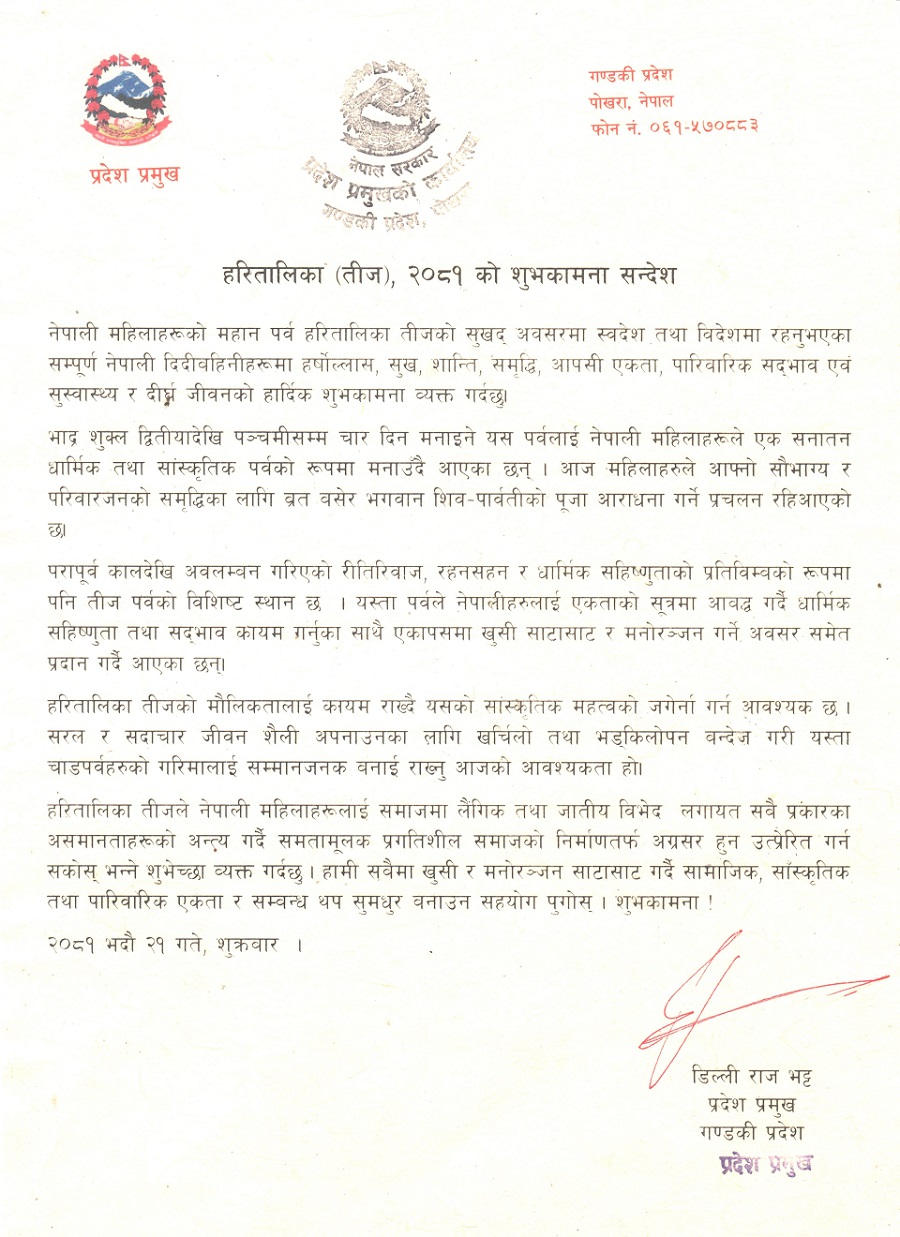 गण्डकी प्रदेश
पोखरा, नेपाल
फोन नं. ०६१-५७०८८३
प्रदेश प्रमुख
नेपाल सरकार
प्रदेश प्रमुखको कार्यालय
गण्डकी प्रदेश, पोखरा
हरितालिका (तीज), २०८१ को शुभकामना सन्देश
नेपाली महिलाहरूको महान पर्व हरितालिका तीजको सुखद् अवसरमा स्वदेश तथा विदेशमा रहनुभएका
सम्पूर्ण नेपाली दिदीवहिनीहरूमा हर्षोल्लास, सुख, शान्ति, समृद्धि, आपसी एकता, पारिवारिक सद्‌भाव एवं
सुस्वास्थ्य र दीर्घ जीवनको हार्दिक शुभकामना व्यक्त गर्दछु।
भाद्र शुक्ल द्वितीयादेखि पञ्चमीसम्म चार दिन मनाइने यस पर्वलाई नेपाली महिलाहरूले एक सनातन
धार्मिक तथा सांस्कृतिक पर्वको रूपमा मनाउँदै आएका छन् । आज महिलाहरुले आफ्नो सौभाग्य र
परिवारजनको समृद्धिका लागि ब्रत वसेर भगवान शिव-पार्वतीको पूजा आराधना गर्ने प्रचलन रहिआएको
छ।
परापूर्व कालदेखि अवलम्वन गरिएको रीतिरिवाज, रहनसहन र धार्मिक सहिष्णुताको प्रतिविम्वको रूपमा
पनि तीज पर्वको विशिष्ट स्थान छ । यस्ता पर्वले नेपालीहरुलाई एकताको सूत्रमा आवद्ध गर्दै धार्मिक
सहिष्णुता तथा सद्‌भाव कायम गर्नुका साथै एकापसमा खुसी साटासाट र मनोरञ्जन गर्ने अवसर समेत
प्रदान गर्दै आएका छन्।
हरितालिका तीजको मौलिकतालाई कायम राख्दै यसको सांस्कृतिक महत्वको जगेर्ना गर्न आवश्यक छ ।
सरल र सदाचार जीवन शैली अपनाउनका लागि खर्चिलो तथा भड्किलोपन वन्देज गरी यस्ता
चाडपर्वहरुको गरिमालाई सम्मानजनक वनाई राख्नु आजको आवश्यकता हो।
हरितालिका तीजले नेपाली महिलाहरूलाई समाजमा लैंगिक तथा जातीय विभेद लगायत सवै प्रकारका
असमानताहरूको अन्त्य गर्दै समतामूलक प्रगतिशील समाजको निर्माणतर्फ अग्रसर हुन उत्प्रेरित गर्न
सकोस् भन्ने शुभेच्छा व्यक्त गर्दछु । हामी सवैमा खुसी र मनोरञ्जन साटासाट गर्दै सामाजिक, साँस्कृतिक
तथा पारिवारिक एकता र सम्वन्ध थप सुमधुर वनाउन सहयोग पुगोस् । शुभकामना !
२०८१ भदौ २१ गते, शुक्रवार ।
डिल्ली राज भट्ट
प्रदेश प्रमुख
गण्डकी प्रदेश
प्रदेश प्रमुख